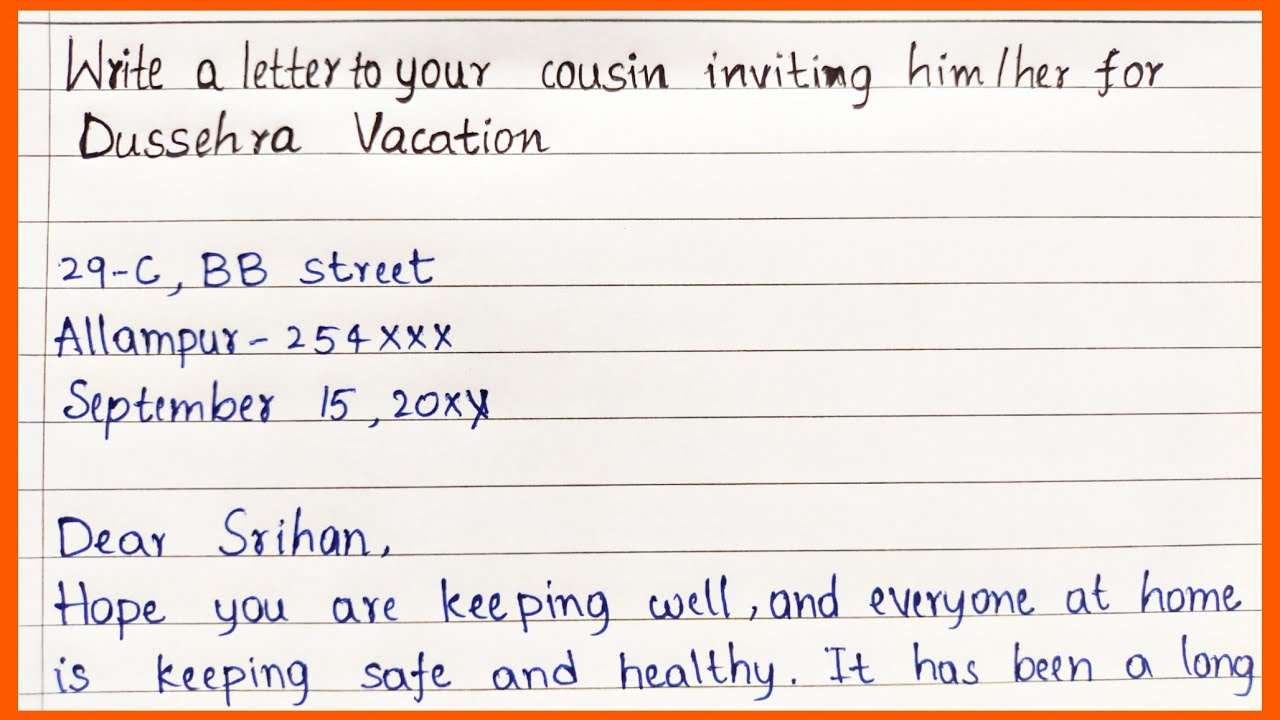 Write a letter to your cousin inviting him/her for
Dussehra Vacation
29-C, BB street
Allampur - 254xxx
September 15, 20xy
Dear Srihan,
Hope you are keeping well, and everyone at home
is keeping safe and healthy. It has been a long